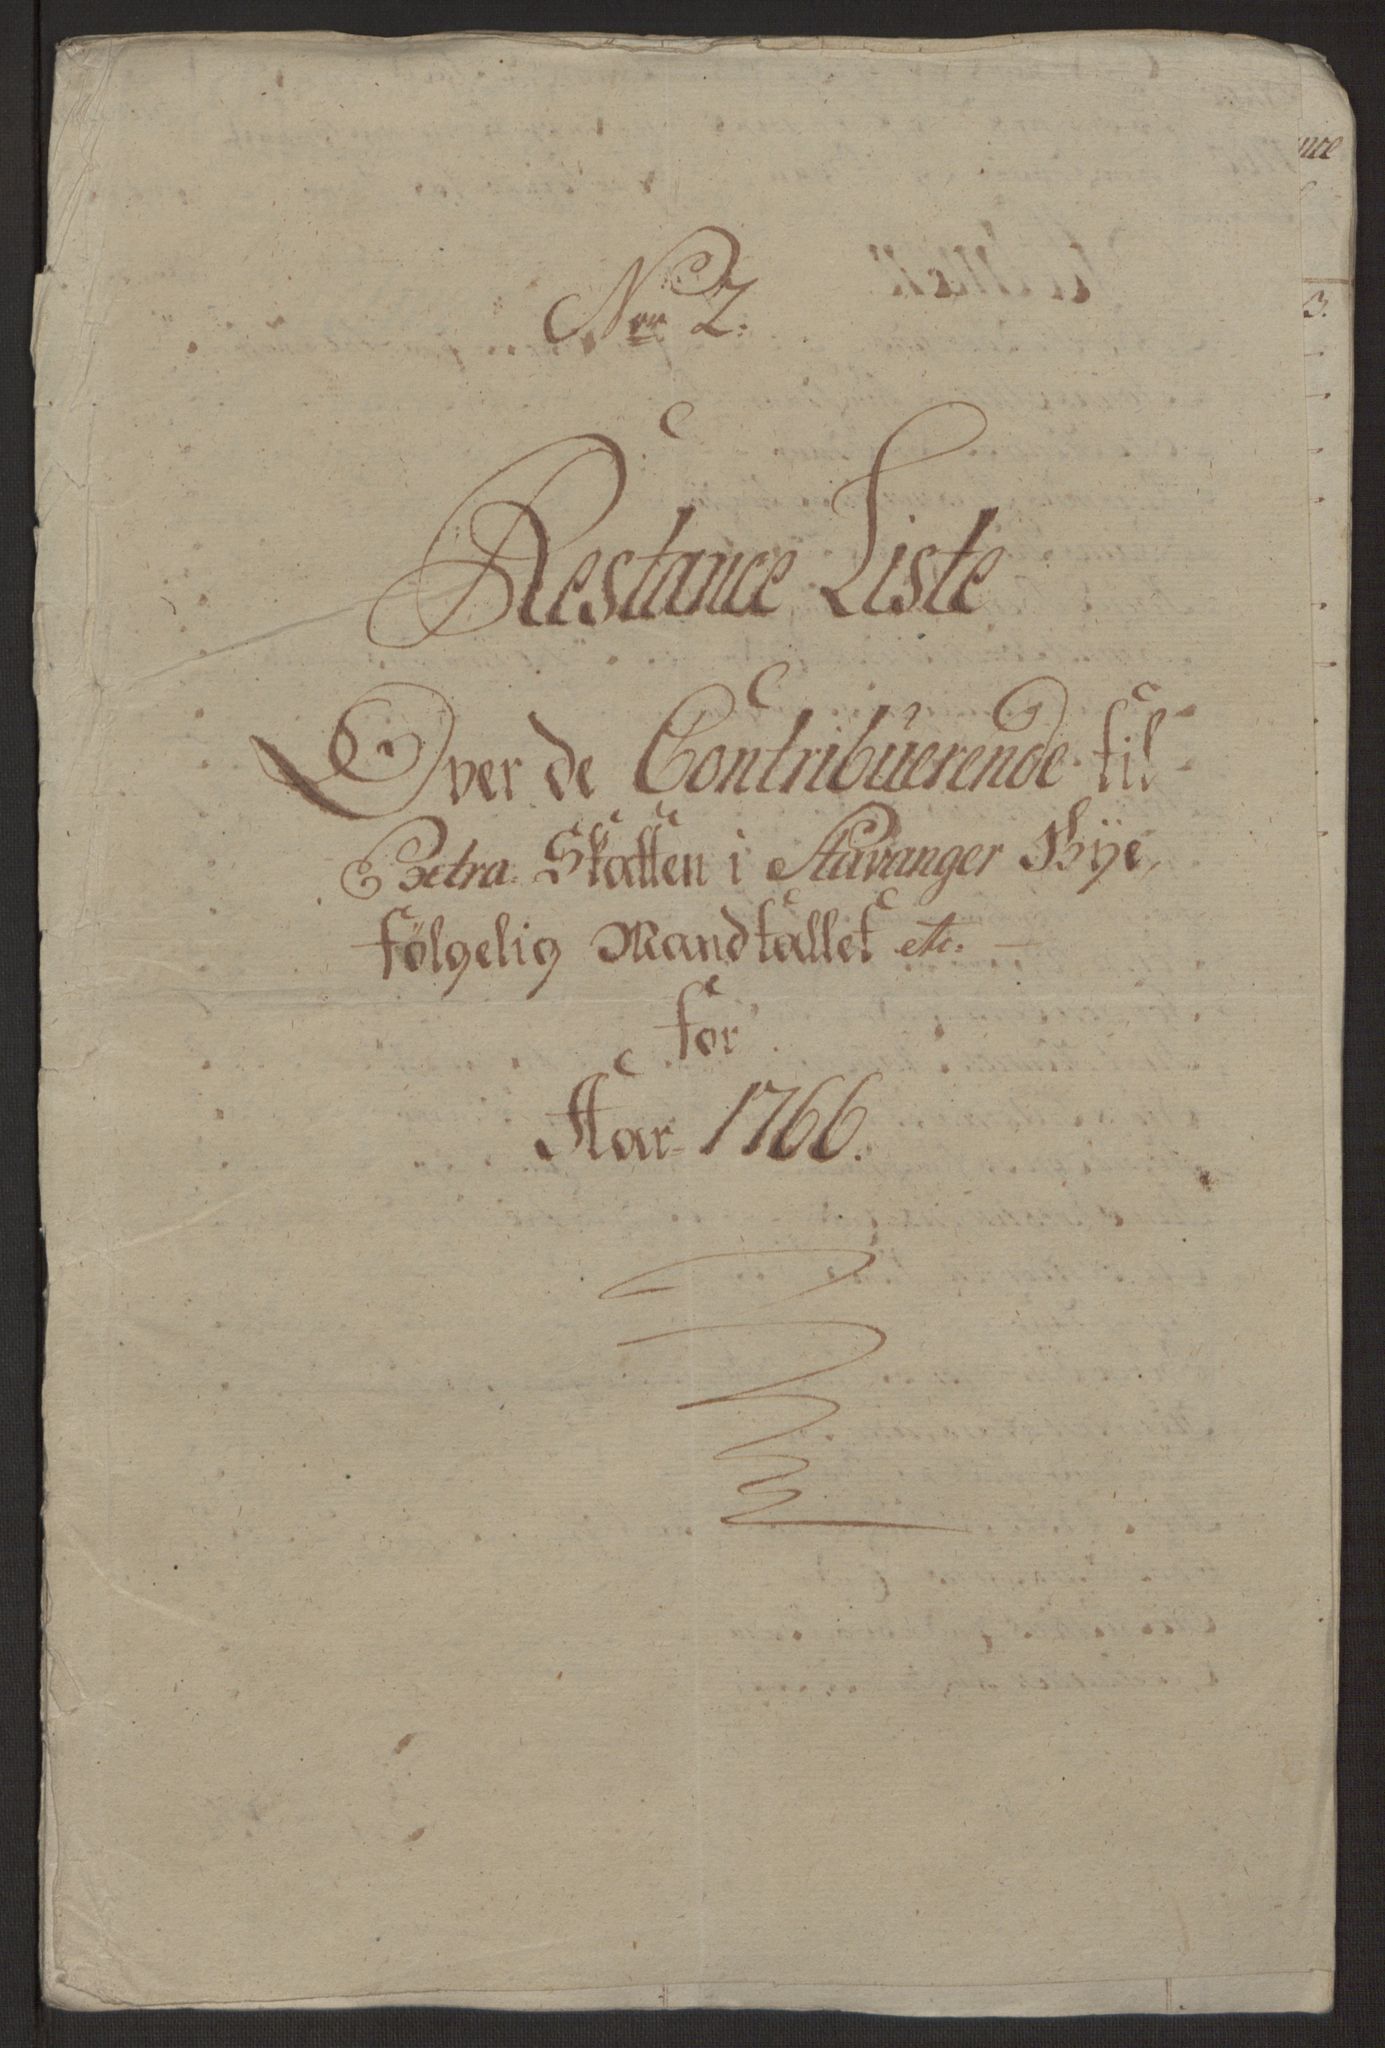 No 2.
Restance Liste
Over de Contribuerende til
Extra Skatten i Stavanger Bye,
følgelig Mandtallet etc.
for
Aar 1766.
nce
3.